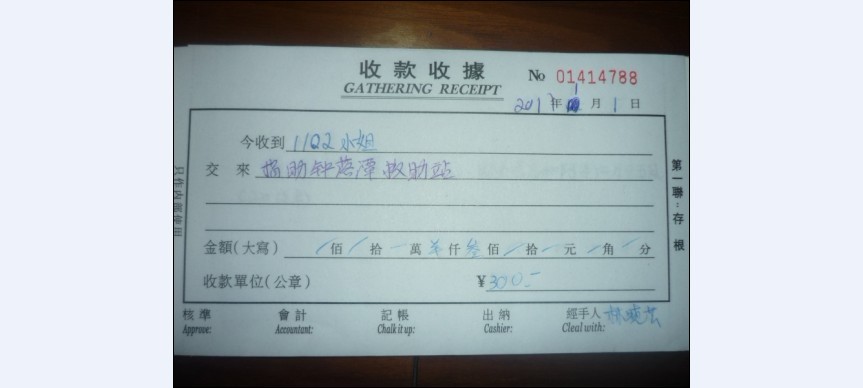 收款收據 No 01414788
GATHERING RECEIPT
201 年 1 月 1 日
今收到 1122 小姐
交來 捐助钟落潭救助站
金額(大寫) 佰 拾 萬 仟 叁 佰 拾 元 角 分
收款單位(公章) ¥300.-
核準 會計 記帳 出納 經手人
Approve: Accountant: Chalk it up: Cashier: Cleal with:
第一聯:存根